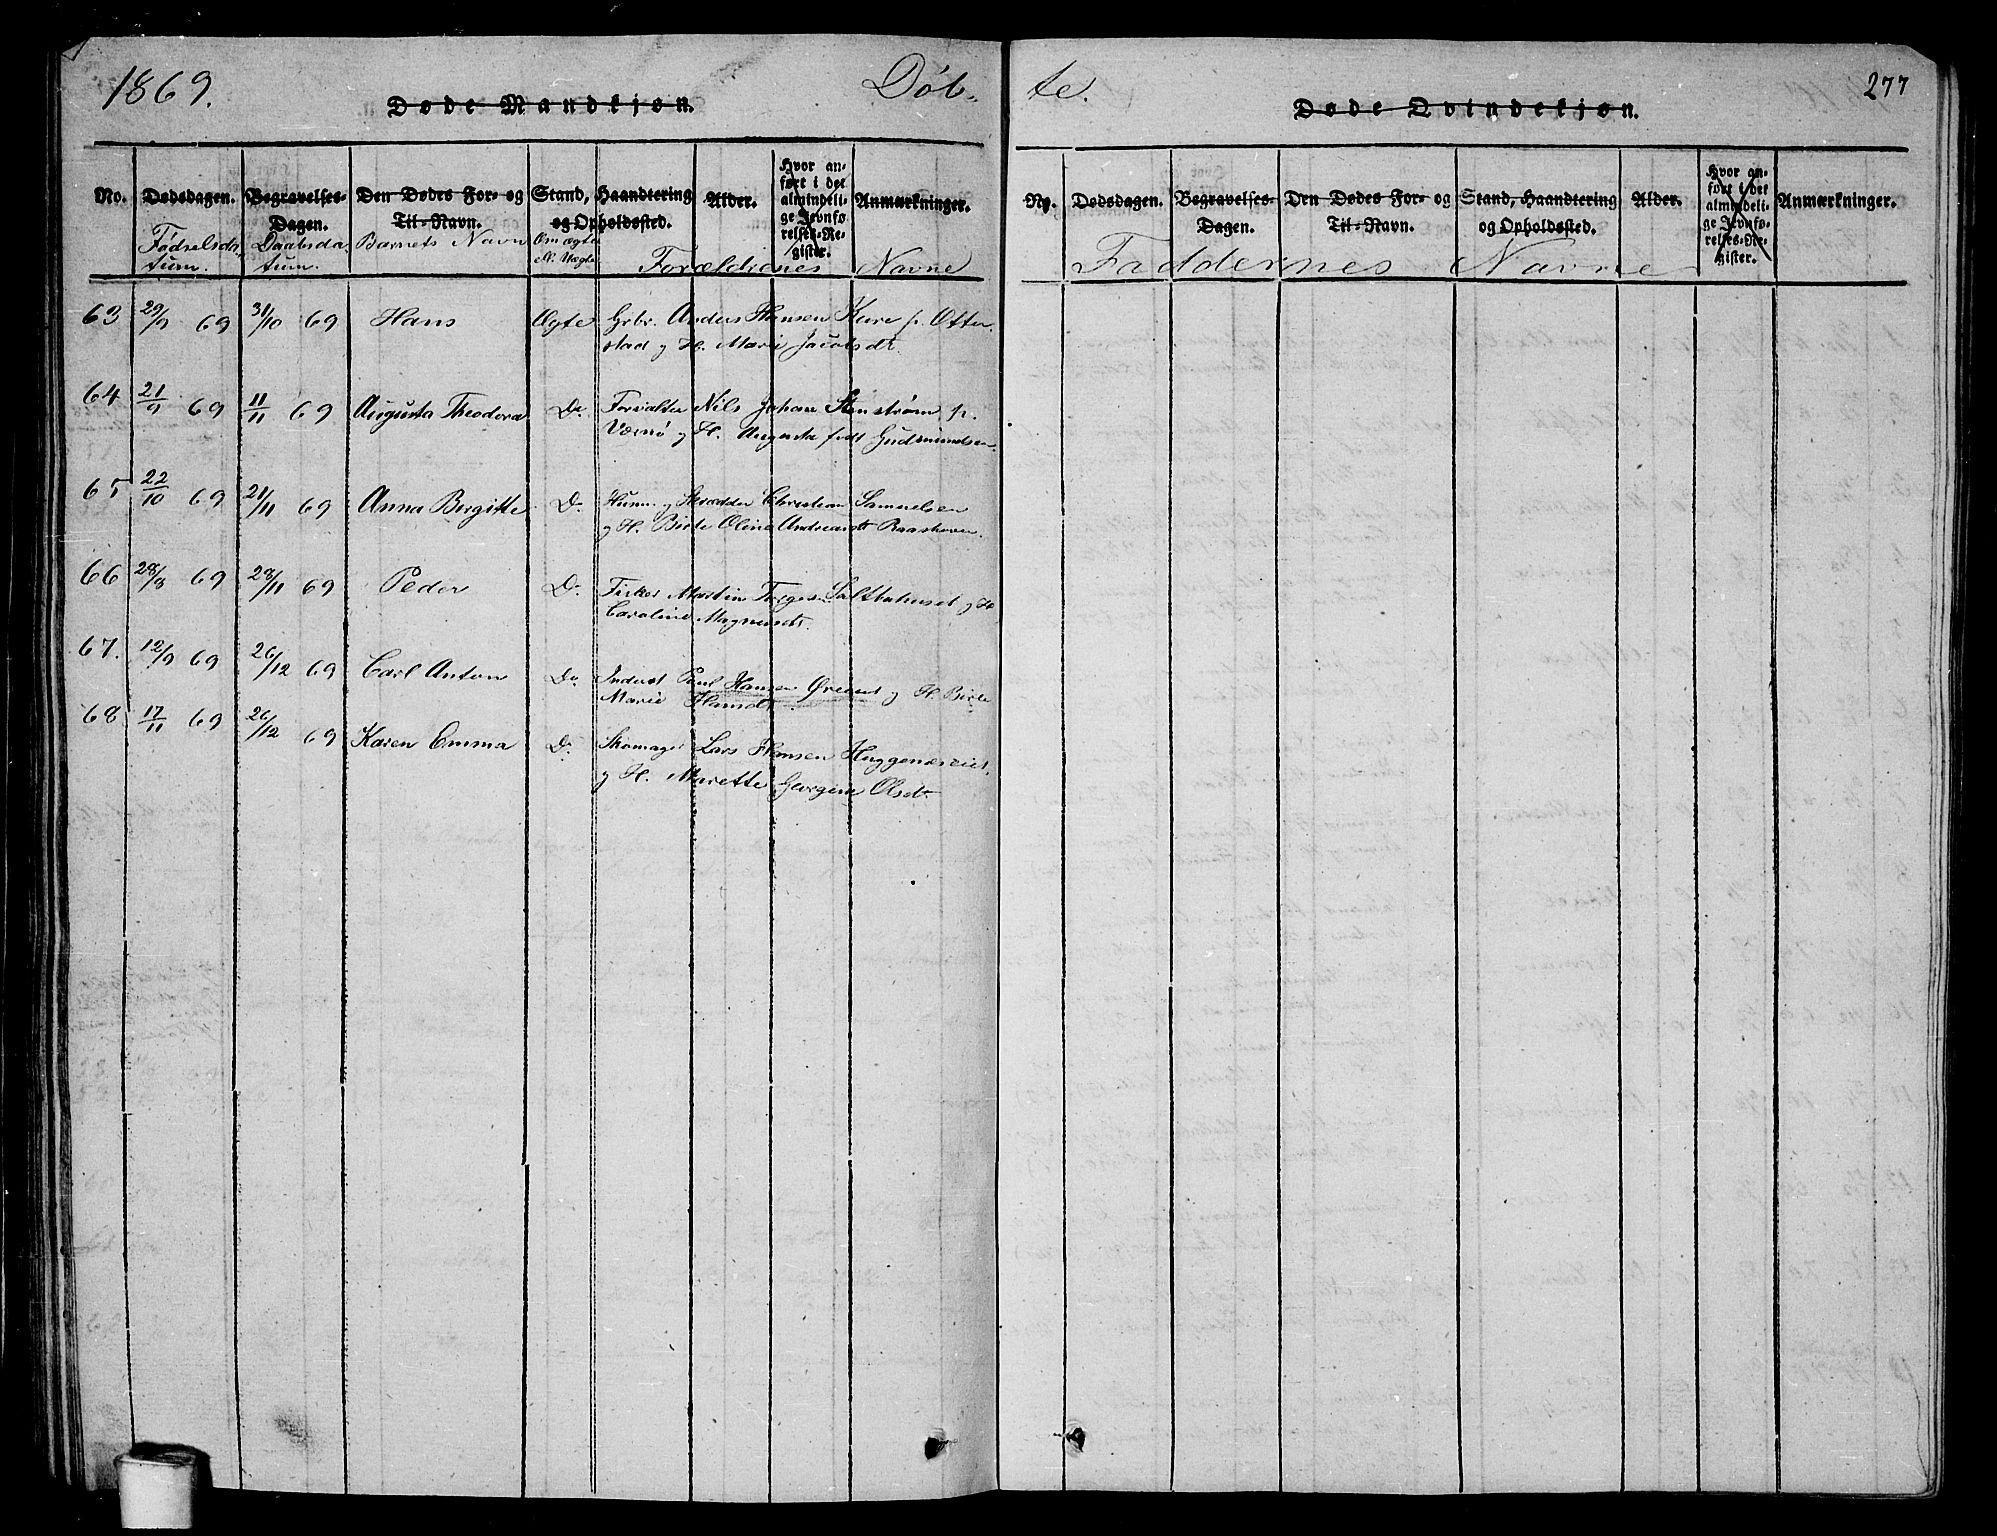 1869.
Døb-
te.
277
Døde Mandkjøn.
Døde Qvindekjøn.
No. Dødsdagen. Begravelses-Dagen. Den Dødes For- og Til-Navn. Stand, Haandtering og Opholdssted. Alder. Hvor anført i det almindelige Jevnførelses-Register. Anmærkninger.
Fødselsdatum. Daabsdatum. Barnets Navn Om ægte el. Uægte Forældrenes Navne
No. Dødsdagen. Begravelses-Dagen. Den Dødes For- og Til-Navn. Stand, Haandtering og Opholdssted. Alder. Hvor anført i det almindelige Jevnførelses-Register. Anmærkninger.
Faddernes Navne
63 29/9 69 31/10 69 Hans Ægte Grbr. Anders Hansen Kure p. Otter-
stad og H. Marie Jacobsdt.
64 21/9 69 11/11 69 Augusta Theodora Do Forvalter Nils Johan Stenstrøm p.
Værnø og H. Augusta født Gudmundsen.
65 22/10 69 21/11 69 Anna Birgitte Do Husm. og Skrædder Christian Samuelsen
og H. Birte Oline Andreasdt
66 28/8 69 28/11 69 Peder Do Fisker Martin Saltbuhuset og H.
Caroline Magnusdt.
67. 12/9 69 26/12 69 Carl Anton Do Inderst Paul Hansen og H. Birte
Marie Hansdt.
68 17/11 69 26/12 69 Karen Emma Do Skomager Lars Hansen Huggenæseiet.
og H. Marette Georgine Olsdt.